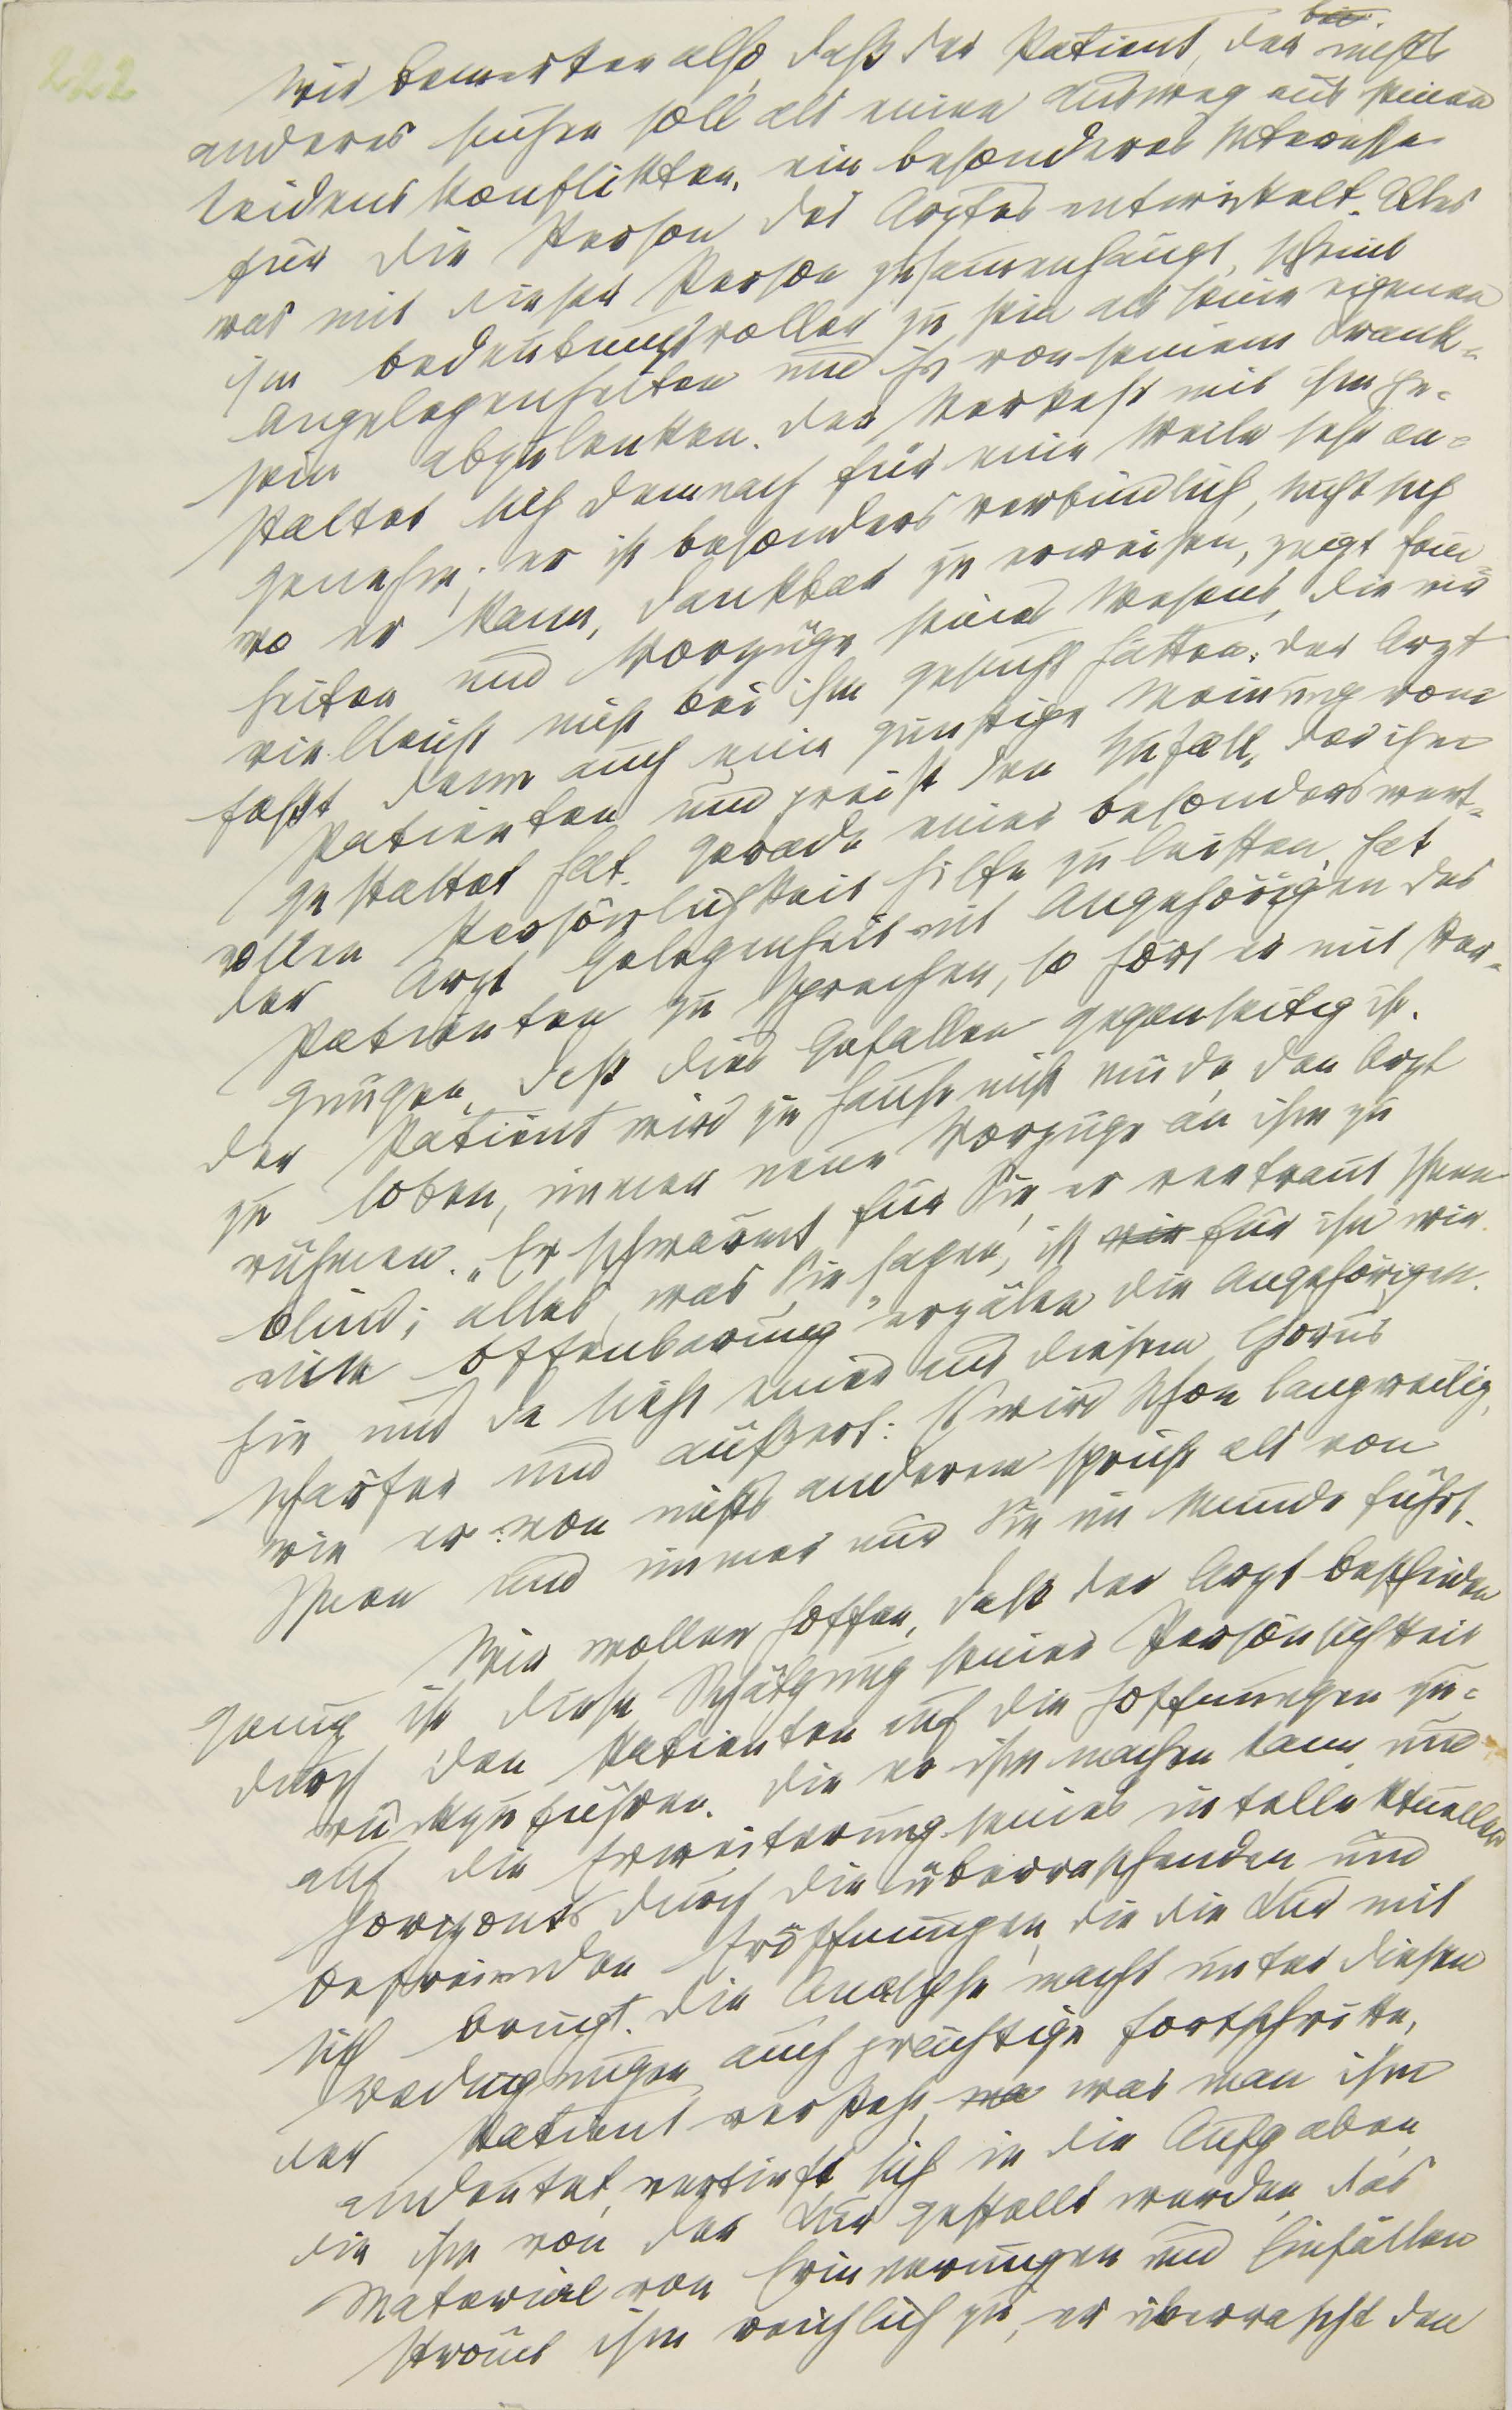 222
Wir bemerken also, daß der Patient, der nichts
anderes suchen soll als einen Ausweg aus seinen
Leidenskonflikten, ein besonderes Interesse
für die Person des Arztes entwickelt. Alles
was mit dieser Person zusammenhängt, scheint
ihm bedeutungsvoller zu sein als seine eigenen
Angelegenheiten und ihn von seinem Krank-
sein abzulenken. Der Verkehr mit ihm ge-
staltet sich demnach für eine Weile sehr an-
genehm; er ist besonders verbindlich, sucht sich
wo er kann, dankbar zu erweisen, zeigt Fein-
heiten und Vorzüge seines Wesens, die wir
vielleicht nicht bei ihm gesucht hätten. Der Arzt
faßt dann auch eine günstige Meinung vom
Patienten und preist den Zufall, der ihm
gestattet hat, gerade einer besonders wert-
vollen Persönlichkeit Hilfe zu leisten. Hat
der Arzt Gelegenheit mit Angehörigen des
Patienten zu sprechen, so hört er mit Ver-
gnügen, daß dies Gefallen gegenseitig ist.
Der Patient wird zu Hause nicht müde, den Arzt
zu loben, immer neue Vorzüge an ihm zu
rühmen. „Er schwärmt für Sie, er vertraut Ihnen
blind; alles, was Sie sagen, ist wie für ihn wie
eine Offenbarung" erzälen die Angehörigen.
Hie und da sieht einer aus diesem Chorus
schärfer und äußert: Es wird schon langweilig,
wie er von nichts anderem spricht als von
Ihnen und immer nur Sie im Munde führt.
Wir wollen hoffen, daß der Arzt bescheiden
genug ist diese Schätzung seiner Persönlichkeit
durch den Patienten auf die Hoffnungen zu-
rückzuführen, die er ihm machen kann und
auf die Erweiterung seines intellektuellen
Horizonts durch die überraschenden und
befreienden Eröffnungen, die die Kur mit
sich bringt. Die Analyse macht unter diesen
Bedingungen auch prächtige Fortschritte,
der Patient versteht, wa was man ihm
andeutet, vertieft sich in die Aufgaben,
die ihm von der Kur gestellt werden, das
Material von Erinnerungen und Einfällen
strömt ihm reichlich zu, er überrascht den